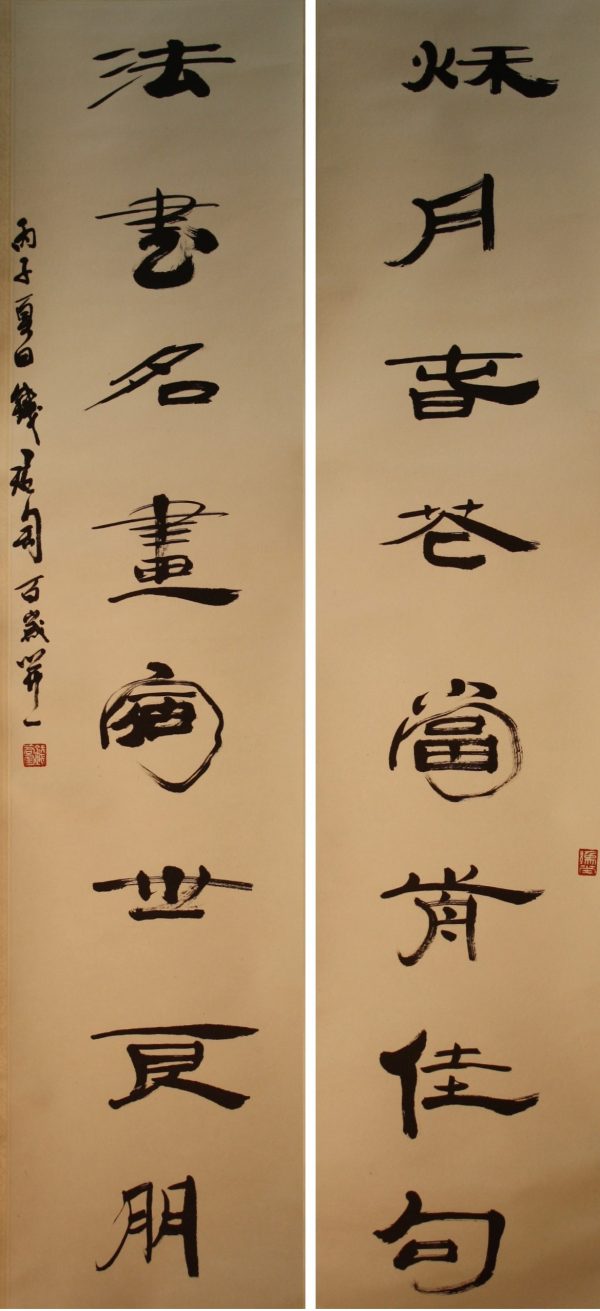 秌月春花當前佳句
法書名畫宿世良朋
丙子夏日錢君匋百歲一